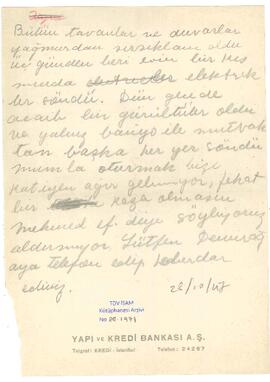 Bütün tavanlar ve duvarlar
yağmurdan sırsıklam oldu
üç günden beri evin bir kıs
mında elektrik
ler söndü. Dün gece de
acaib bir gürültüler oldu
ve yalnız banyo ile mutvak
tan başka her yer söndü
mumla oturmak bize
katiyen ağır gelmiyor, fakat
bir kaza olmasın
mehmed ef. diye söylüyoruz
aldırmıyor. Lütfen
aya telefon edip haberdar
ediniz.
22/10/47
TDV İSAM
Kütüphanesi Arşivi
No
YAPI ve KREDİ BANKASI A.Ş.
Telgraf: KREDİ - İstanbul Telefon: 24267